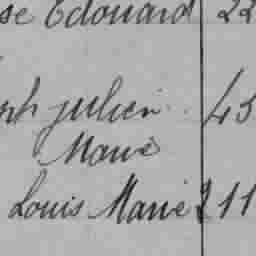 se Edouard 22
ph julien 43
Marie
Louis Marie 211